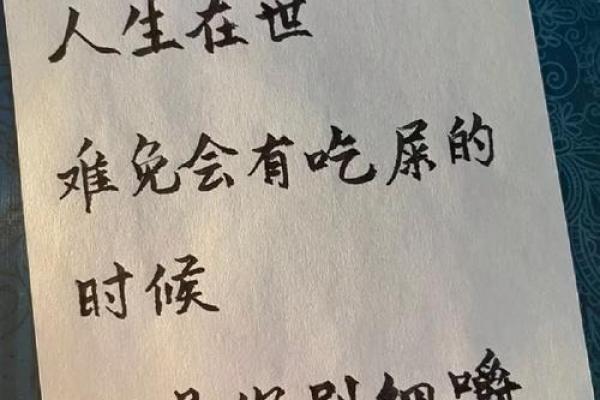 人生在世
难免会有吃屎的
时候
别细嚼